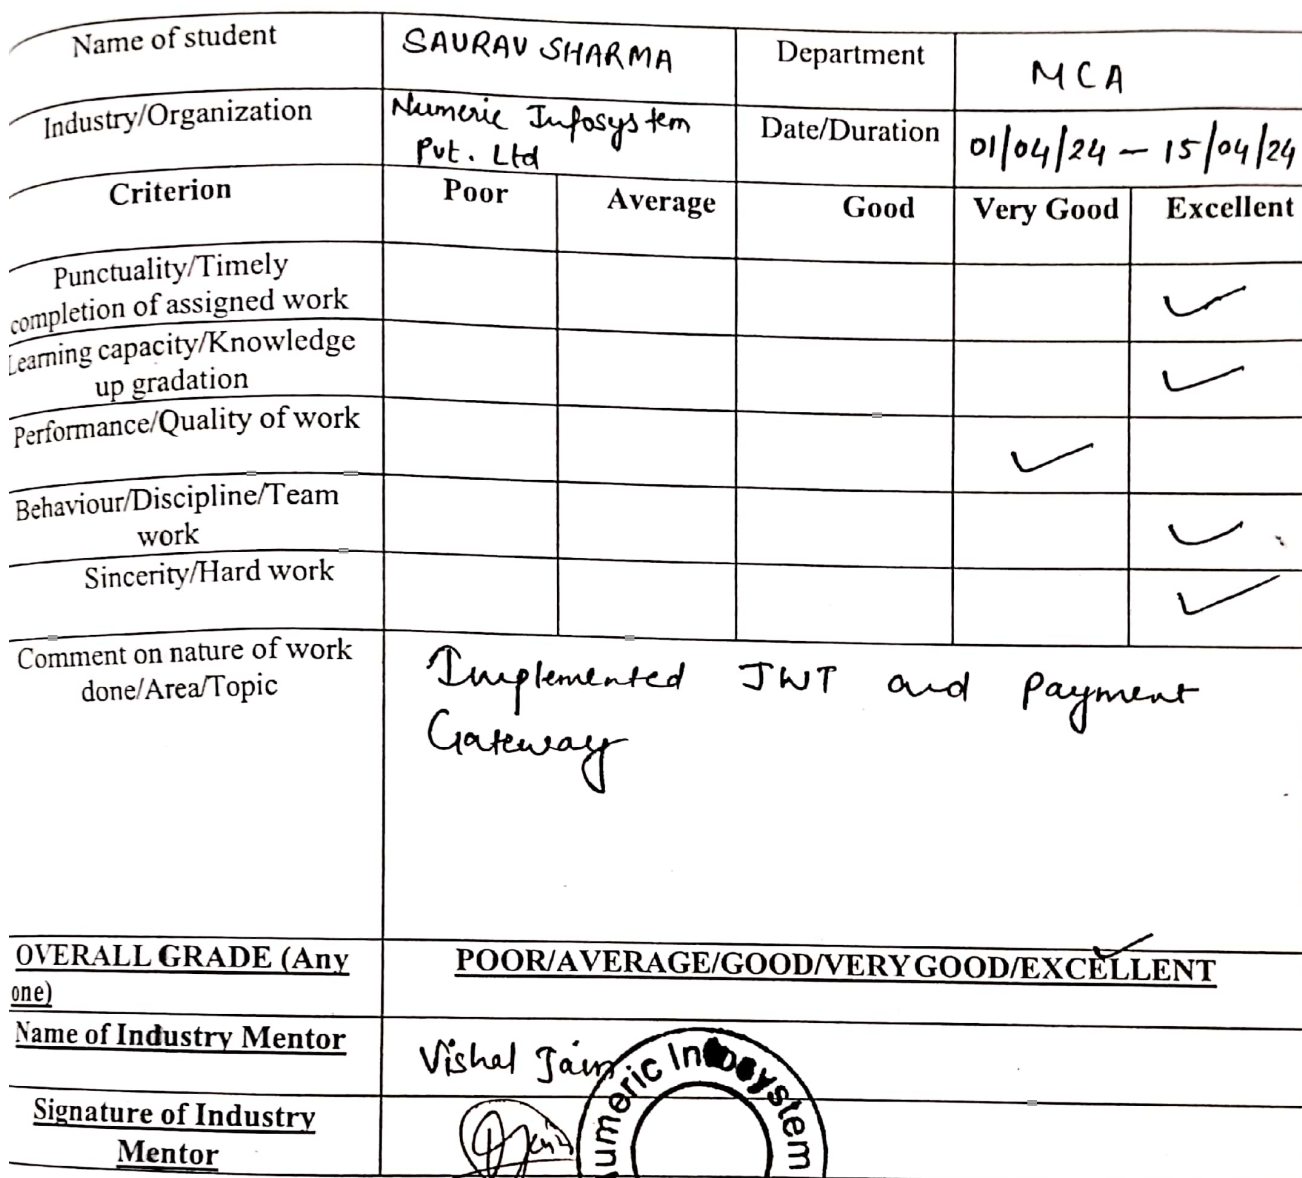 Name of student
SAURAV SHARMA
Department
MCA
Industry/Organization
Numeric Infosystem
Pvt. Ltd
Date/Duration
01/04/24 – 15/04/24
Criterion
Poor
Average
Good
Very Good
Excellent
Punctuality/Timely
completion of assigned work
Learning capacity/Knowledge
up gradation
Performance/Quality of work
Behaviour/Discipline/Team
work
Sincerity/Hard work
Comment on nature of work
done/Area/Topic
Implemented JWT and Payment
Gateway
OVERALL GRADE (Any
one)
POOR/AVERAGE/GOOD/VERY GOOD/EXCELLENT
Name of Industry Mentor
Vishal Jain
Signature of Industry
Mentor
umeric Infosystem